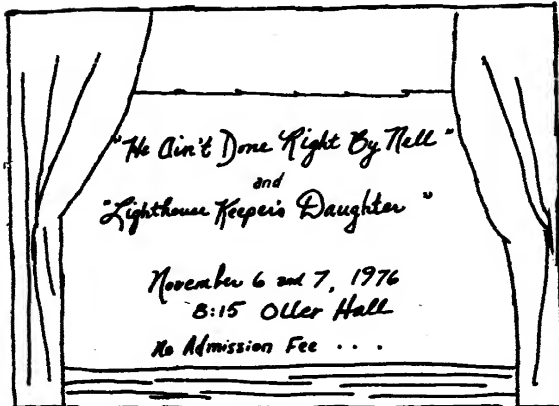 "He Ain't Done Right By Nell"
and
"Lighthouse Keeper's Daughter"
November 6 and 7, 1976
8:15 Oller Hall
No Admission Fee . . .